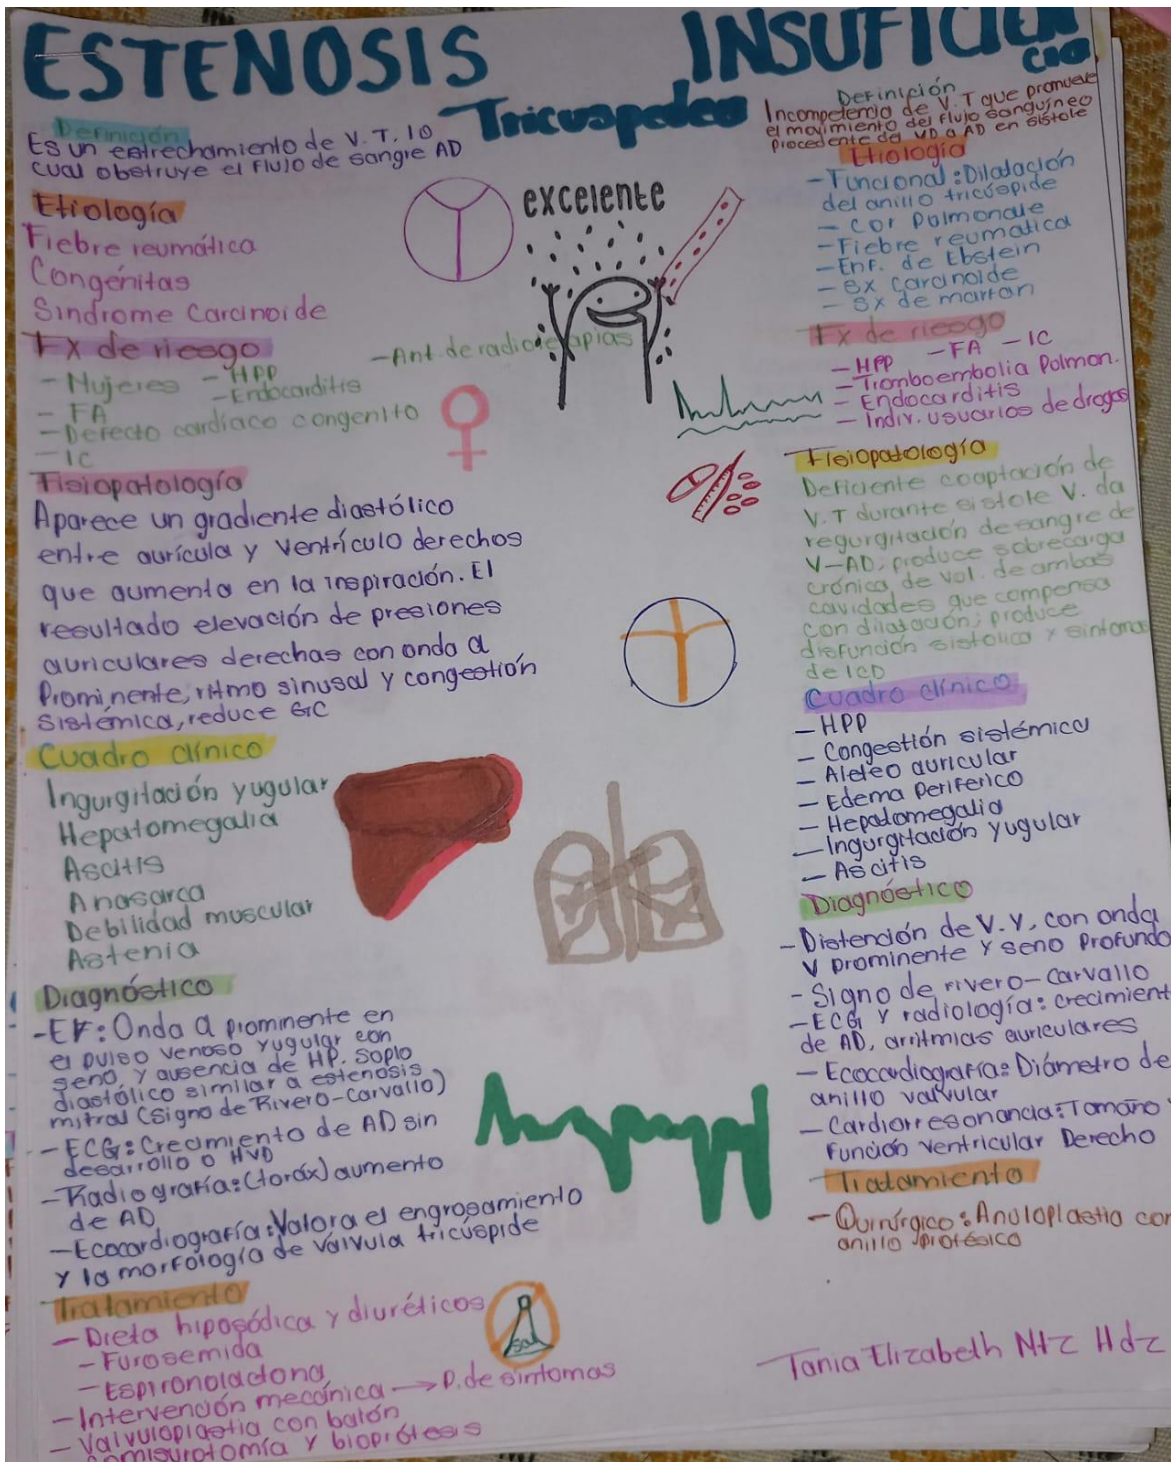 ESTENOSIS
INSUFICIEN
CIA
Tricuspedea
Definición
Es un estrechamiento de V. T. lo
cual obstruye el flujo de sangre AD
Etiología
Fiebre reumática
Congénitas
Síndrome Carcinoide
Fx de riesgo
- Mujeres - HPP
- Ant. de radioterapias
- Endocarditis
- FA
- Defecto cardíaco congenito
- IC
Fisiopatología
Aparece un gradiente diastólico
entre aurícula y ventrículo derechos
que aumenta en la inspiración. El
resultado elevación de presiones
auriculares derechas con onda a
Prominente, ritmo sinusal y congestión
Sistémica, reduce GC
Cuadro clínico
Ingurgitación yugular
Hepatomegalia
Ascitis
Anasarca
Debilidad muscular
Astenia
Diagnóstico
- EF: Onda a prominente en
el pulso venoso yugular con
seno y ausencia de HP. Soplo
diastólico similar a estenosis
mitral (signo de Rivero-Carvallo)
- ECG: Crecimiento de AD sin
desarrollo o HVD
- Radiografía: (toráx) aumento
de AD
- Ecocardiografía: Valora el engrosamiento
y la morfología de válvula tricúspide
Tratamiento
- Dieta hiposódica y diuréticos
- Furosemida
- Espironolactona
- Intervención mecánica → P. de síntomas
- Valvuloplastia con balón
- Comisurotomía y bioprótesis
sal
excelente
Definición
Incompetencia de V. T que promueve
el movimiento del flujo sanguíneo
procedente del VD a AD en sístole
Etiología
- Funcional: Dilatación
del anillo tricúspide
- cor Pulmonale
- Fiebre reumatica
- Enf. de Ebstein
- Sx carcinoide
- Sx de marfan
Fx de riesgo
- HPP - FA - IC
- Tromboembolia Polmon.
- Endocarditis
- Indiv. usuarios de drogas
Fisiopatología
Deficiente coaptación de
V. T durante sistole V. da
regurgitación de sangre de
V-AD; produce sobrecarga
crónica de vol. de ambas
cavidades que compensa
con dilatación; produce
disfunción sistólica y síntomas
de ICD
Cuadro clínico
- HPP
- Congestión sistémica
- Aleteo auricular
- Edema Periferico
- Hepatomegalia
- Ingurgitación yugular
- Ascitis
Diagnóstico
- Distención de V. Y, con onda
V prominente y seno Profundo
- Signo de rivero-carvallo
- ECG y radiología: crecimient
de AD, arritmias auriculares
- Ecocardiografía: Diámetro de
anillo valvular
- Cardiorresonancia: Tamaño
Función ventricular Derecho
Tratamiento
- Quirúrgico: Anuloplastia con
anillo protésico
Tania Elizabeth Ntz Hdz